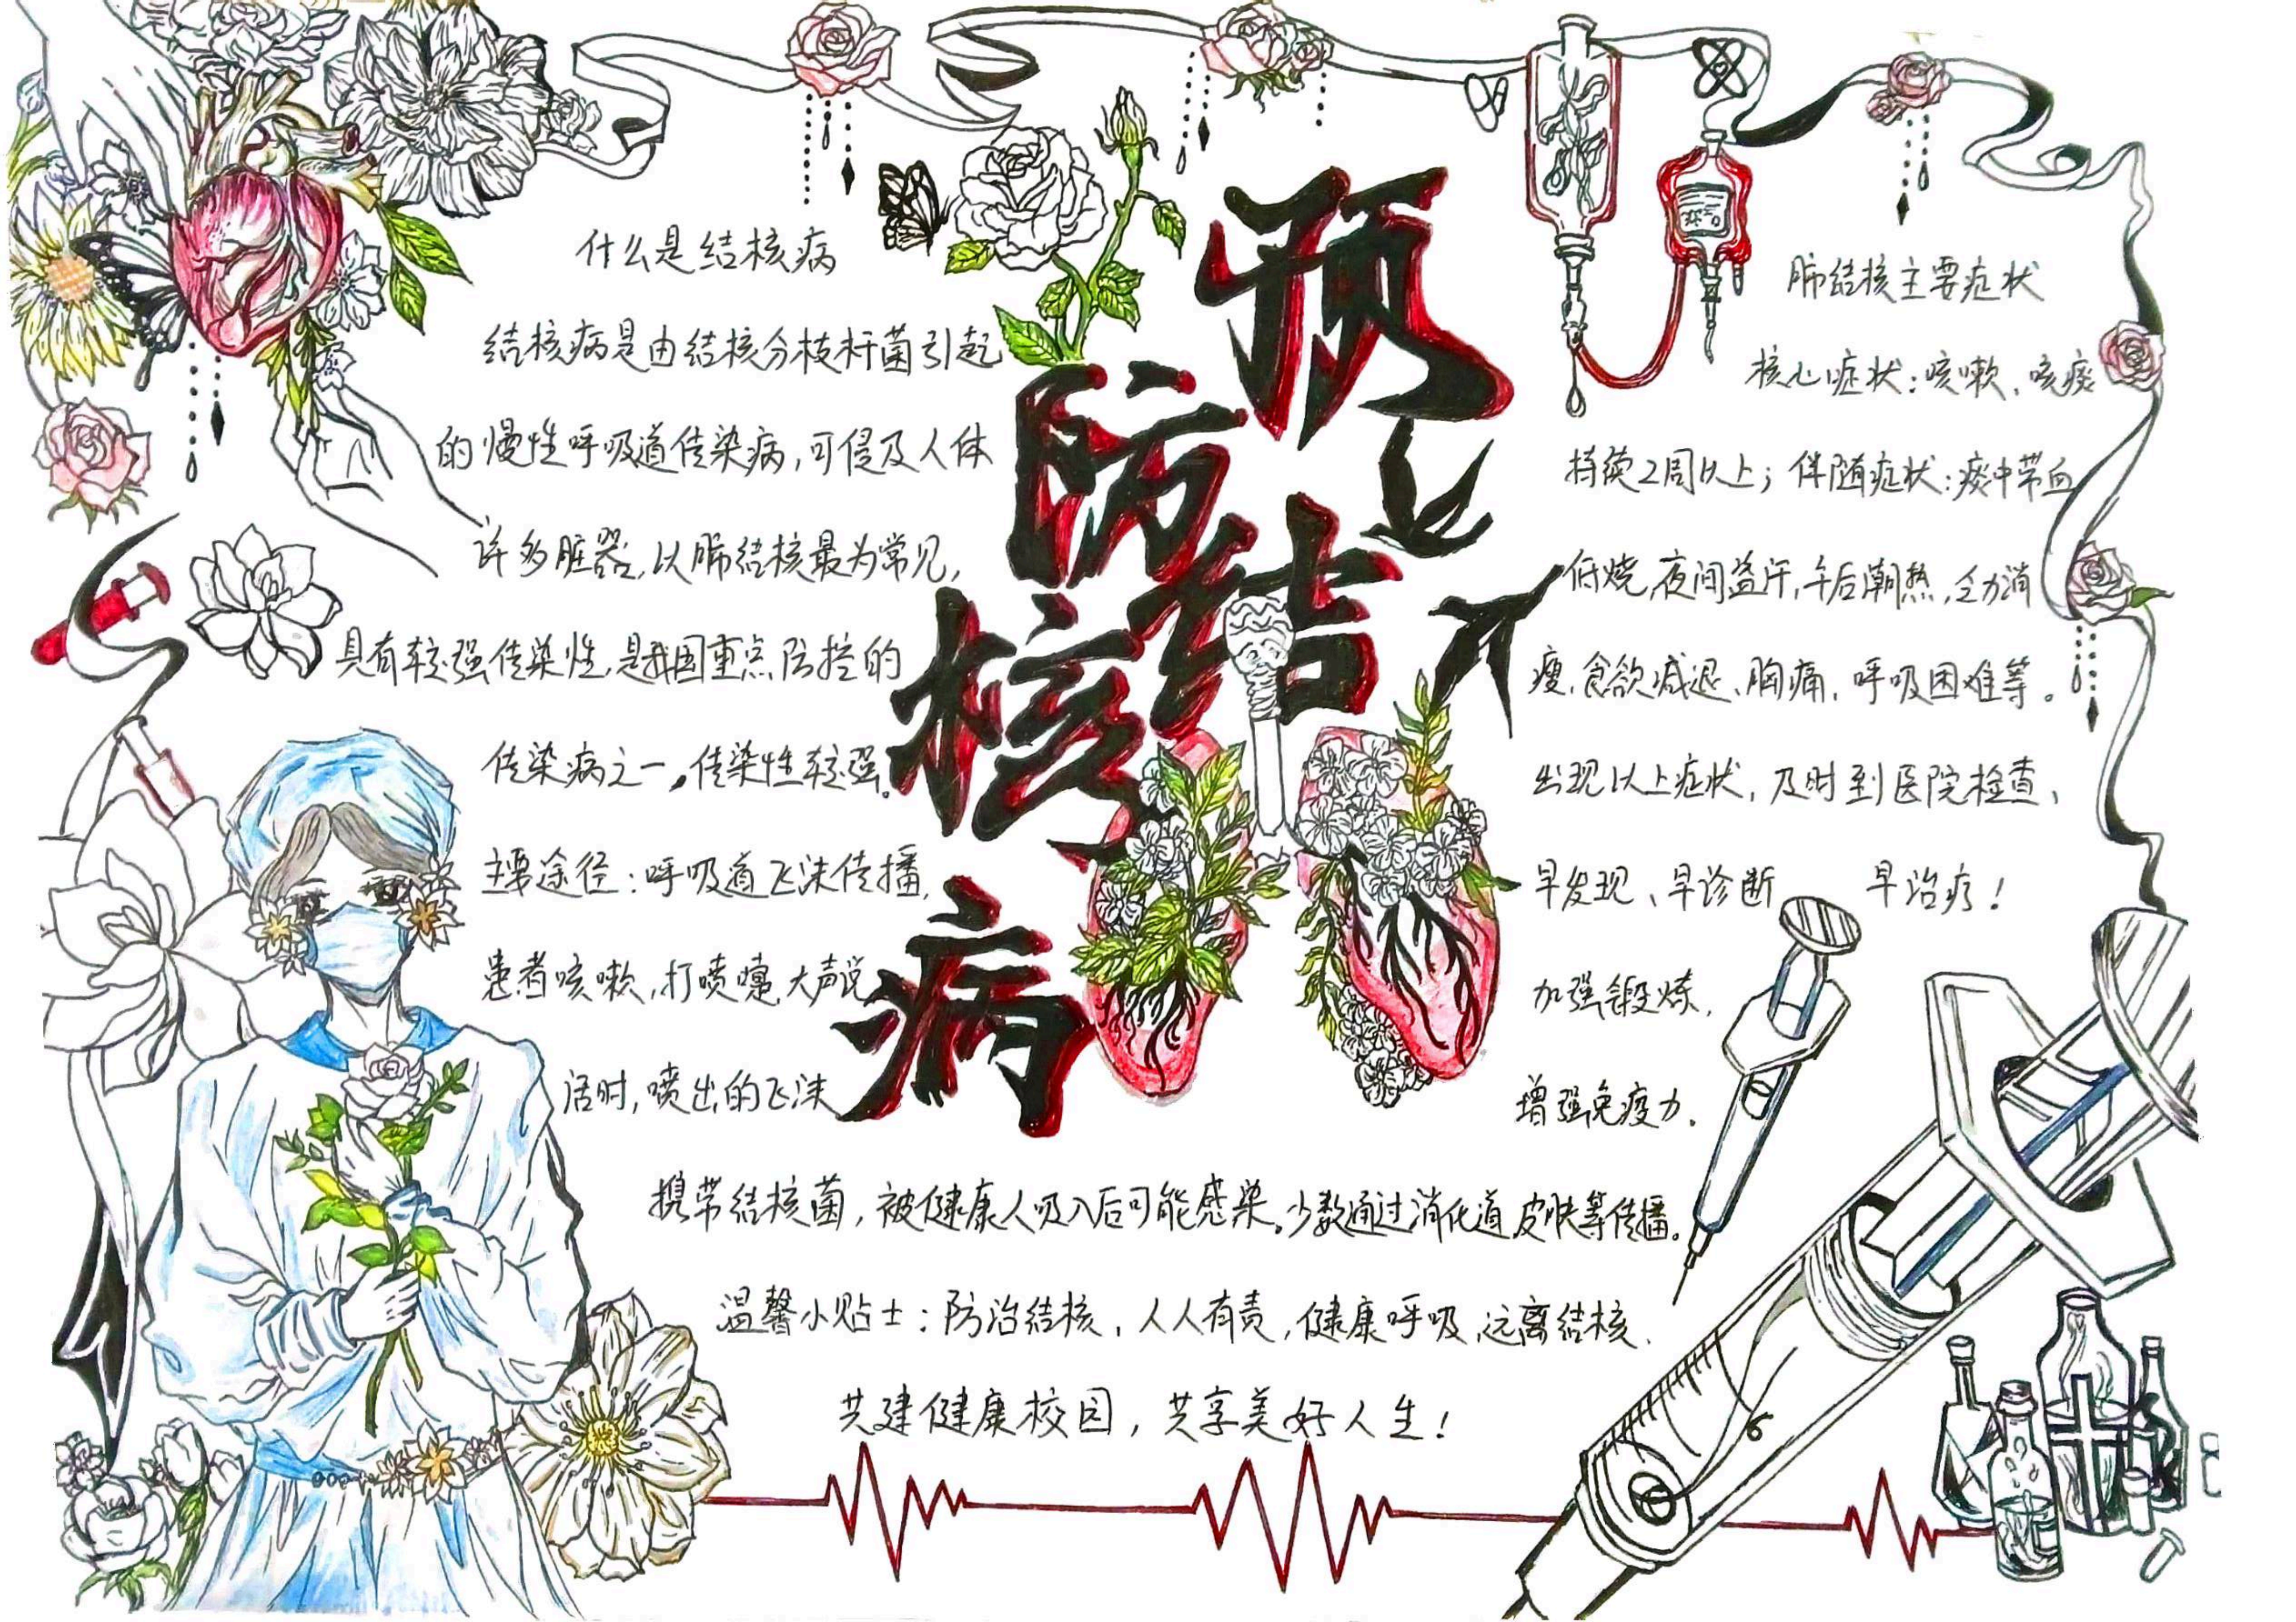 预防结核病
什么是结核病
结核病是由结核分枝杆菌引起
的慢性呼吸道传染病,可侵及人体
许多脏器,以肺结核最为常见,
具有较强传染性,是我国重点防控的
传染病之一。传染性较强。
主要途径:呼吸道飞沫传播,
患者咳嗽,打喷嚏,大声说
话时,喷出的飞沫
携带结核菌,被健康人吸入后可能感染。少数通过消化道,皮肤等传播。
肺结核主要症状
核心症状:咳嗽、咳痰
持续2周以上;伴随症状:痰中带血
低烧,夜间盗汗,午后潮热,乏力消
瘦,食欲减退、胸痛,呼吸困难等。
出现以上症状,及时到医院检查,
早发现、早诊断 早治疗!
加强锻炼,
增强免疫力.
温馨小贴士:防治结核,人人有责,健康呼吸,远离结核.
共建健康校园,共享美好人生!